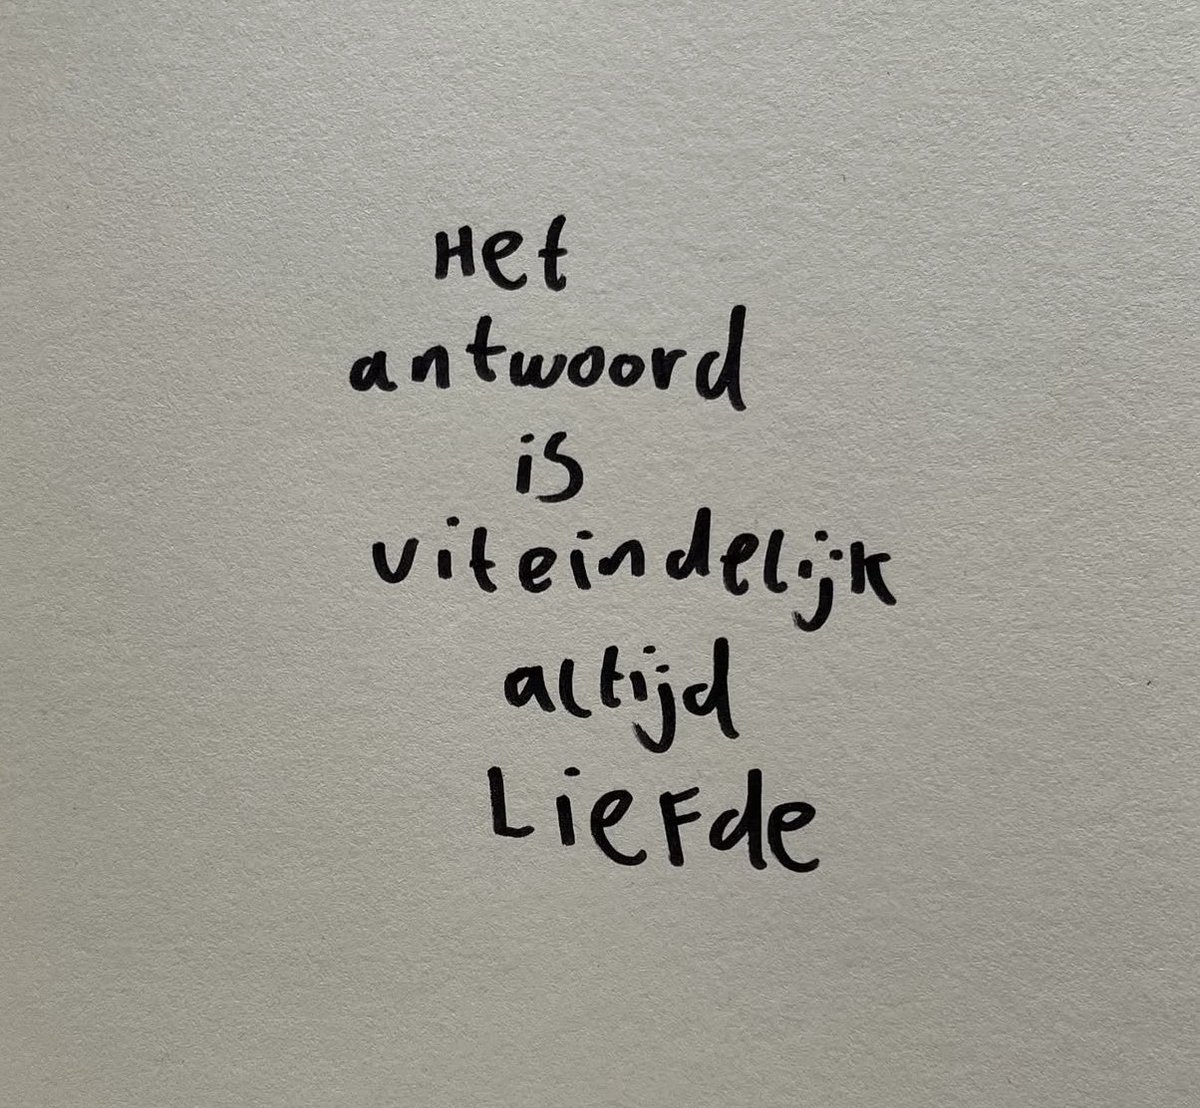 Het
antwoord
is
uiteindelijk
altijd
Liefde